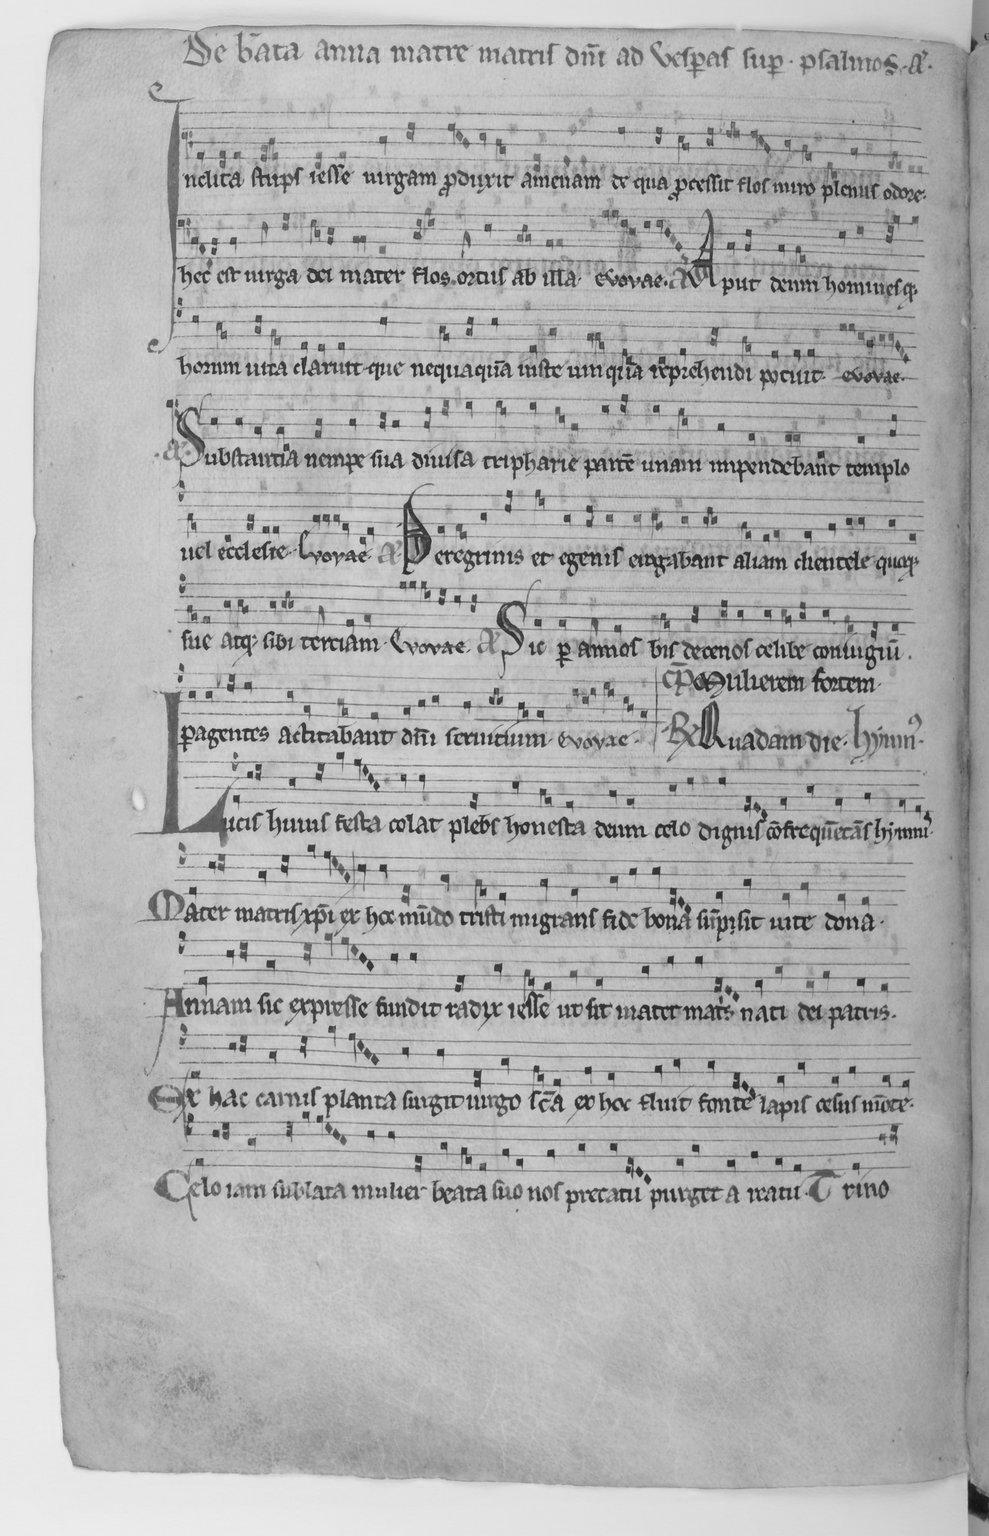 De b̄ata anna matre matris dn̄i ad vesp̄as sup̄ · psalmos · A̅ ·
Inclita stirps iesse uirgam p̄duxit amenam de qua p̄cessit flos miro plenus odore·
hec est uirga dei mater flos ortus ab illa · evovae · A̅ Aput deum hominesq̨
horum uita claruit· que nequaquā iuste umquā rep̄chendi potuit · evovae ·
A̅ Substantia nempe sua diuisa tripharie partē unam inpendebant templo
uel ecclesie · Evovae · A̅ Peregrinis et egenis erogabant aliam clientele queq̨
sue atq̨ sibi terciam · Evovae · A̅ Sic p̲ annos bis decenos celibe coniugiū
cp̄ Mulierem fortem·
peragentes actitabant dn̄i seruitium · evovae · R̷ Quadam die · Hymnꝰ ·
Lucis huius festa colat plebs honesta deum celo dignis cōfrequētās hymnis·
Mater matris xp̄i ex hoc mūdo tristi migrans fide bona sūpsit uite dona ·
Annam sic expresse fundit radix iesse ut sit mater mat͛s nati dei patris ·
Ex hac carnis planta surgit uirgo sc̄a ex hoc fluit fonte lapis cesus mōte·
Celo iam sublata mulier beata suo nos precatu purget a reatu · Trino